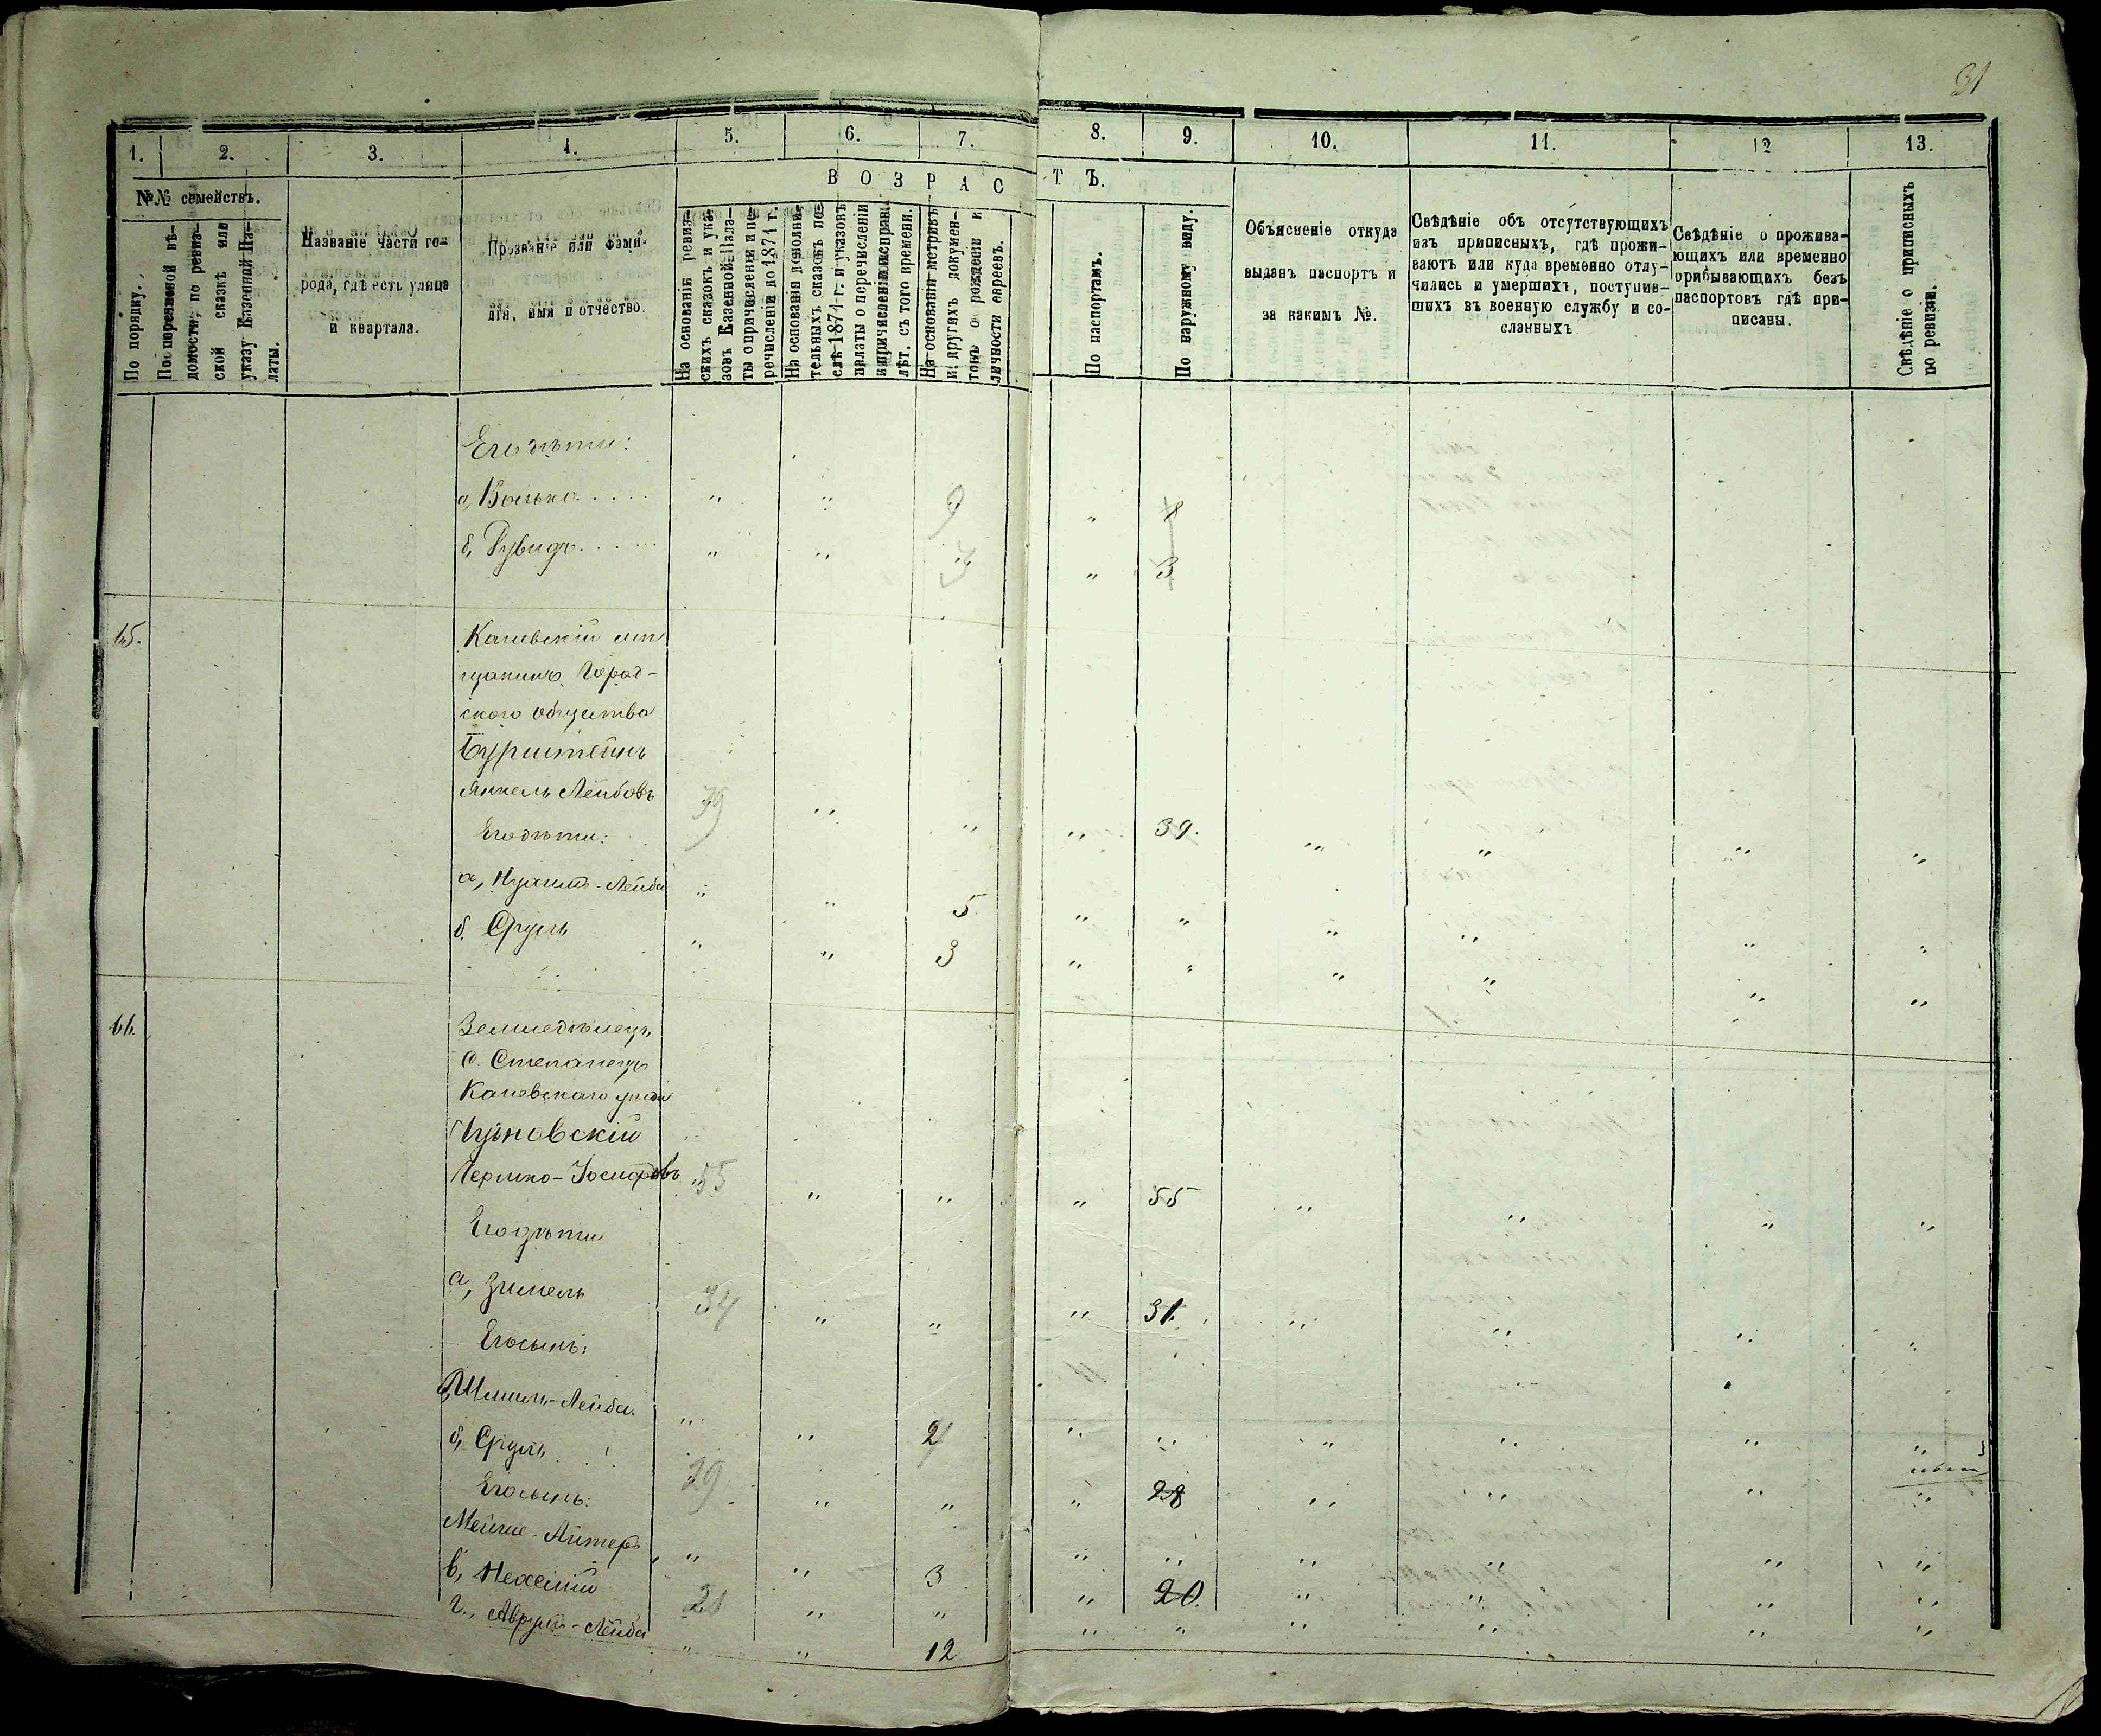 31
1. 2. 3. 4. 5. 6. 7. 8. 9. 10. 11. 12 13.
№№ семействъ.
ВОЗРАСТЪ.
По порядку.
По поременной вѣ-
домости, по ревиз-
ской сказкѣ или
указу Казенной Па-
латы.
Названіе части го-
рода, гдѣ есть улица
и квартала.
Прозваніе или Фами-
лія, имя и отчество.
На основаніи ревиз-
скихъ сказокъ и ука-
зовъ Казенной Пала-
ты о причисленіи и пе-
речисленіи до 1871 г.
На основаніи дополни-
тельныхъ сказокъ по-
слѣ 1871 г. и указовъ
палаты о перечисленіи
и причисленіи и исправл.
лѣт. съ того времени.
На основаніи метрикъ
и другихъ докумен-
товъ о рожденіи и
личности евреевъ.
По паспортамъ.
По наружному виду.
Объясненіе откуда
выданъ паспортъ и
за какимъ №.
Свѣдѣніе объ отсутствующихъ
изъ приписныхъ, гдѣ прожи-
ваютъ или куда временно отлу-
чились и умершихъ, поступив-
шихъ въ военную службу и со-
сланныхъ
Свѣдѣніе о прожива-
ющихъ или временно
прибывающихъ безъ
паспортовъ гдѣ при-
писаны.
Свѣдѣніе о приписныхъ
по ревизіи.
Его дѣти:
а, Волько..... " " 9 " 8
б, Рувидъ..... " " 3 " 3
65. Каневскій мѣ
щанинъ Город-
ского общества
Бурштейнъ
Янкель Лейбовъ 39 " " " 39. " " " "
Его дѣти:
а, Нухимъ-Лейба " " 5 " " " " " "
б. Сруль " " 3 " " " " " "
66. Земледѣлецъ
с. Степанецъ
Каневскаго уѣзда
Чудновскій
Гершко-Іосифовъ 55 " " " 55 " " " "
Его дѣти
а, Зимель 34 " " " 31. " " " "
Его сынъ:
Шмиль-Лейба. " " 2 " " " " " "
б, Сруль 29 " " " 28 " " " "
Его сынъ:
Мейше-Айтеръ " " 3 " " " " " "
в, 21 " " " 20. " " " "
г., Аврумъ-Лейба " " 12 " " " " " "